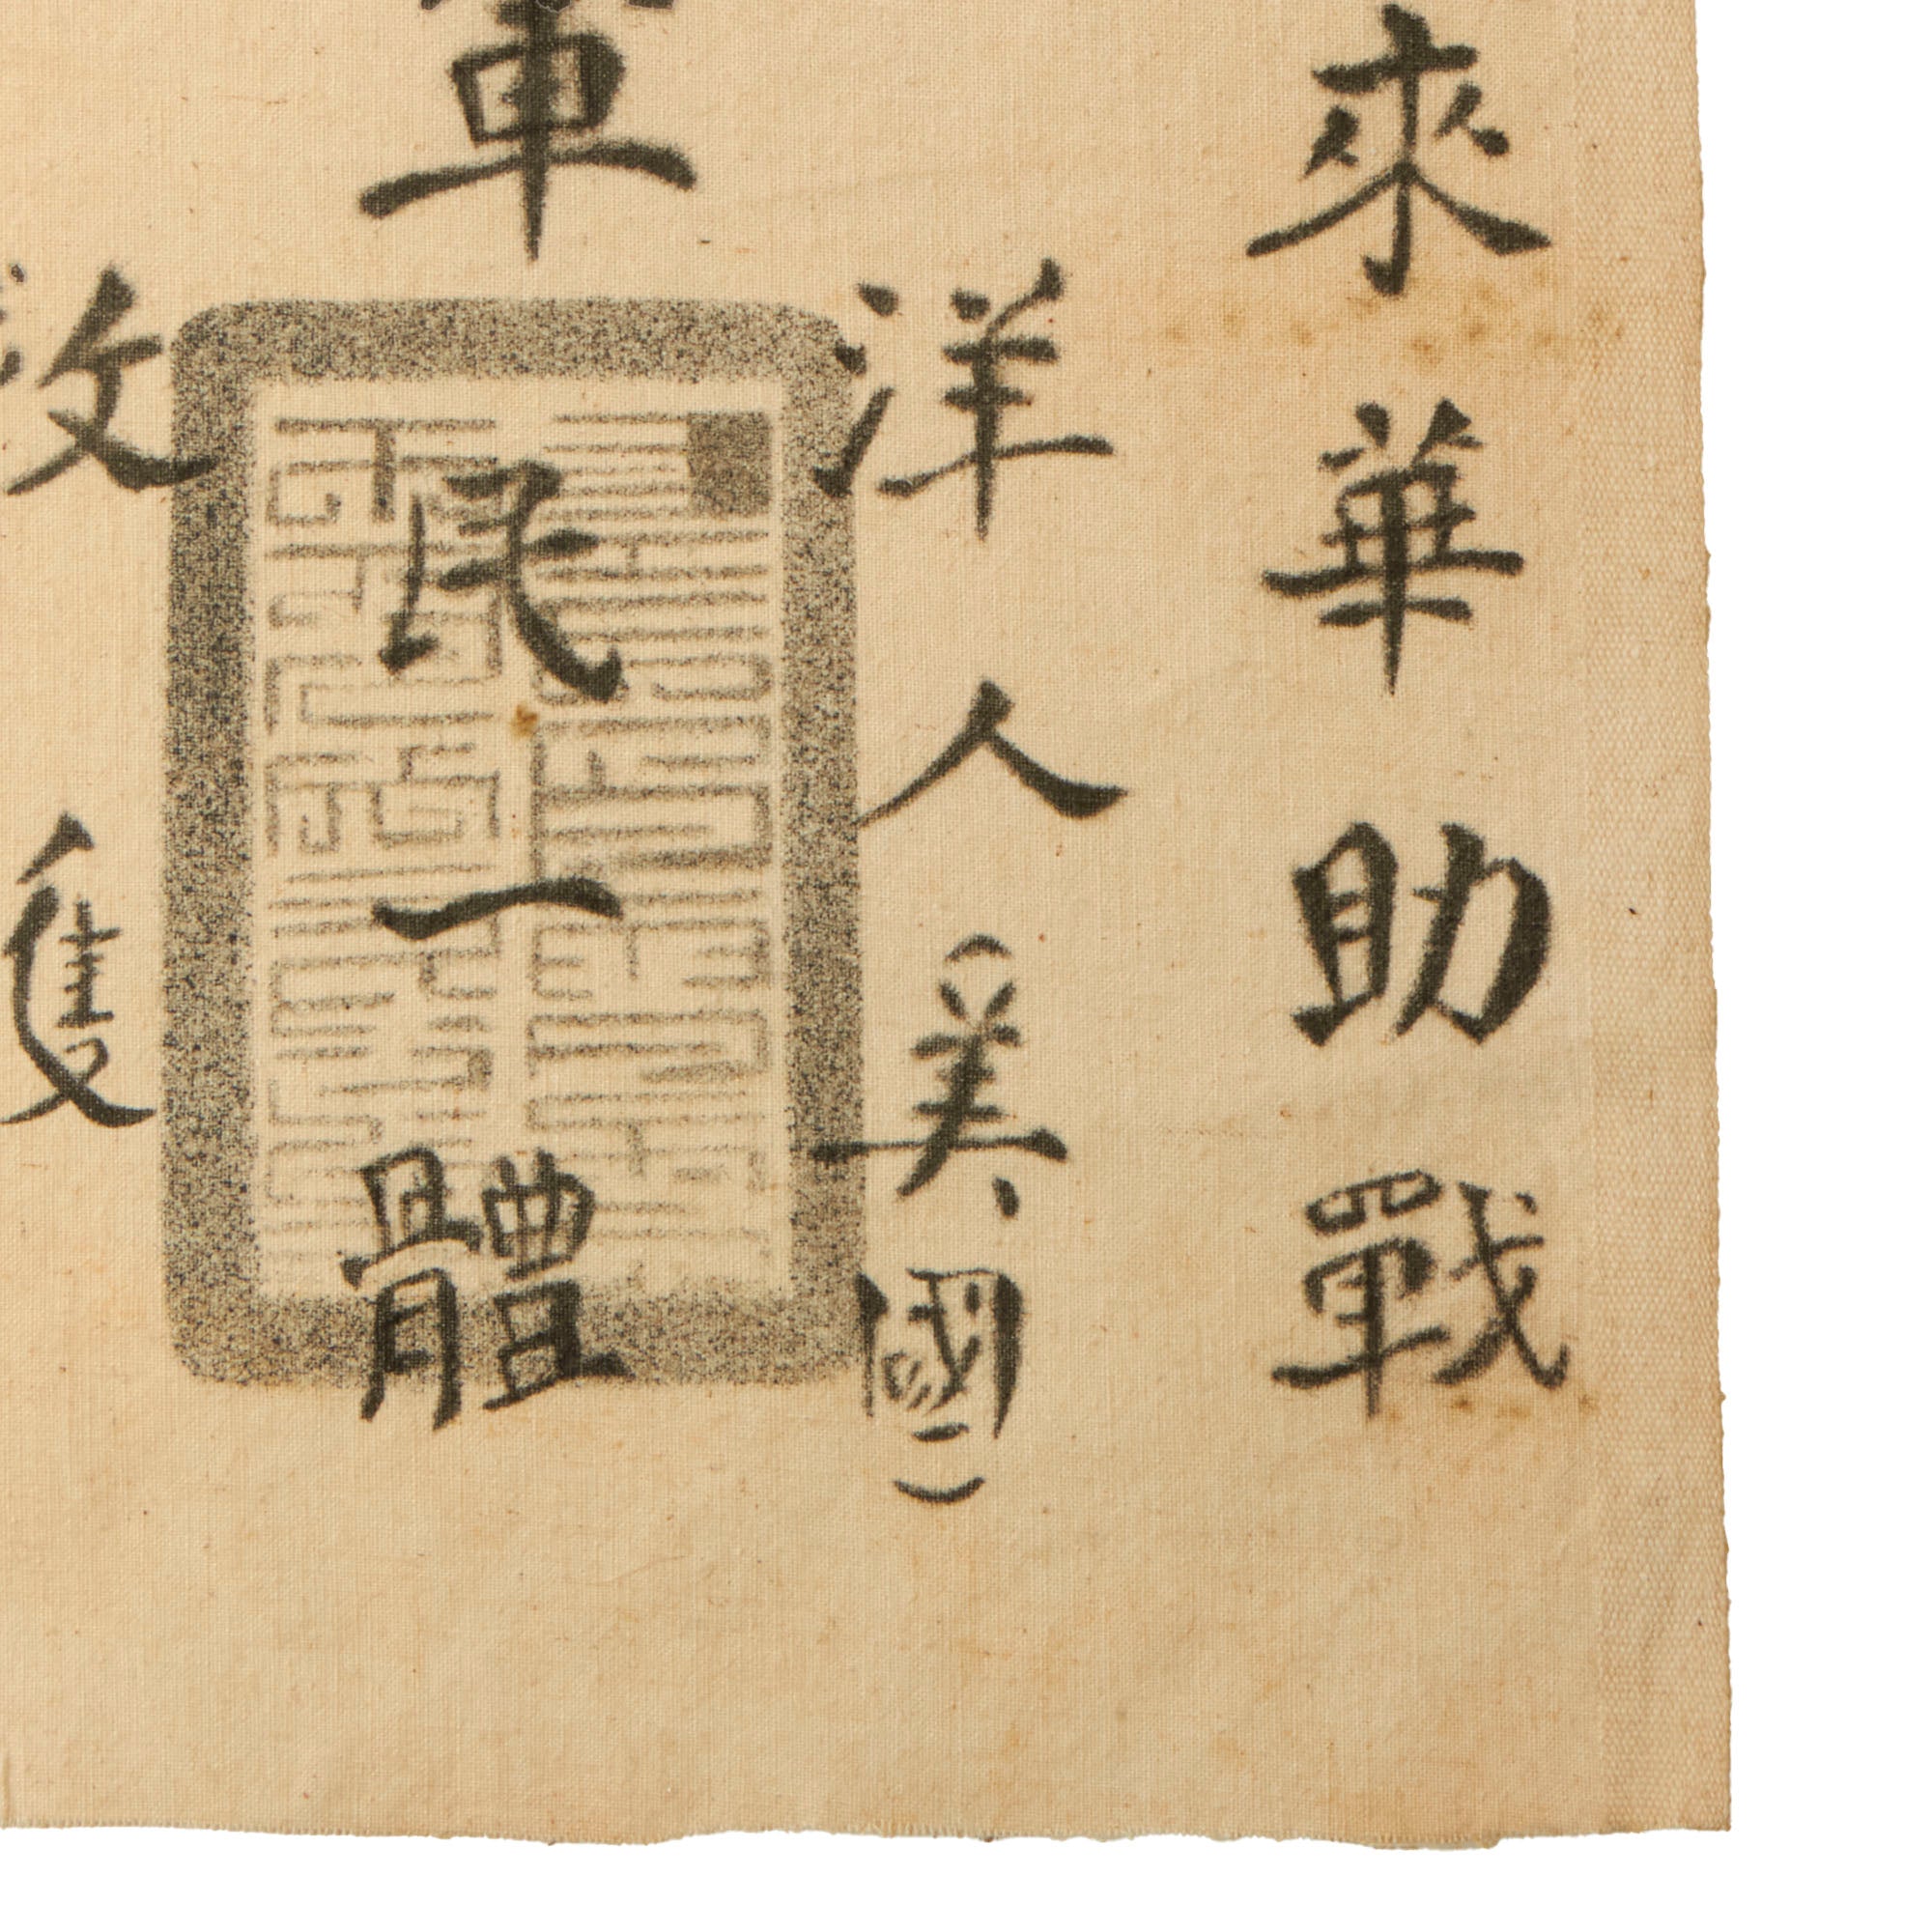 來華助戰
洋人（美國）
軍民一體
救護